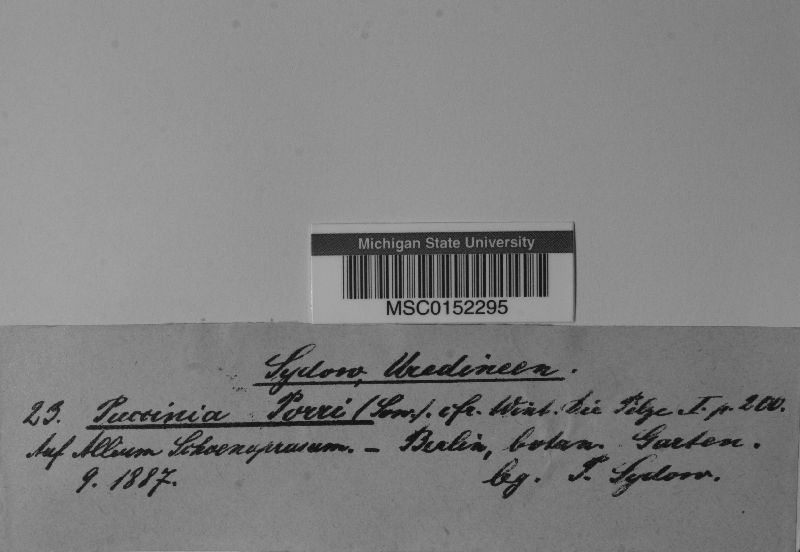 Michigan State University
MSC0152295
Sydow, Uredineen.
23. Puccinia Porri (Sow.). cfr. Wint. Die Pilze. I. p. 200.
Auf Allium Schoenoprasum. – Berlin, botan. Garten.
9. 1887. lg. P. Sydow.